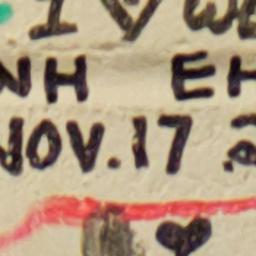 I ♥ WE
NH EH
NOV. 17